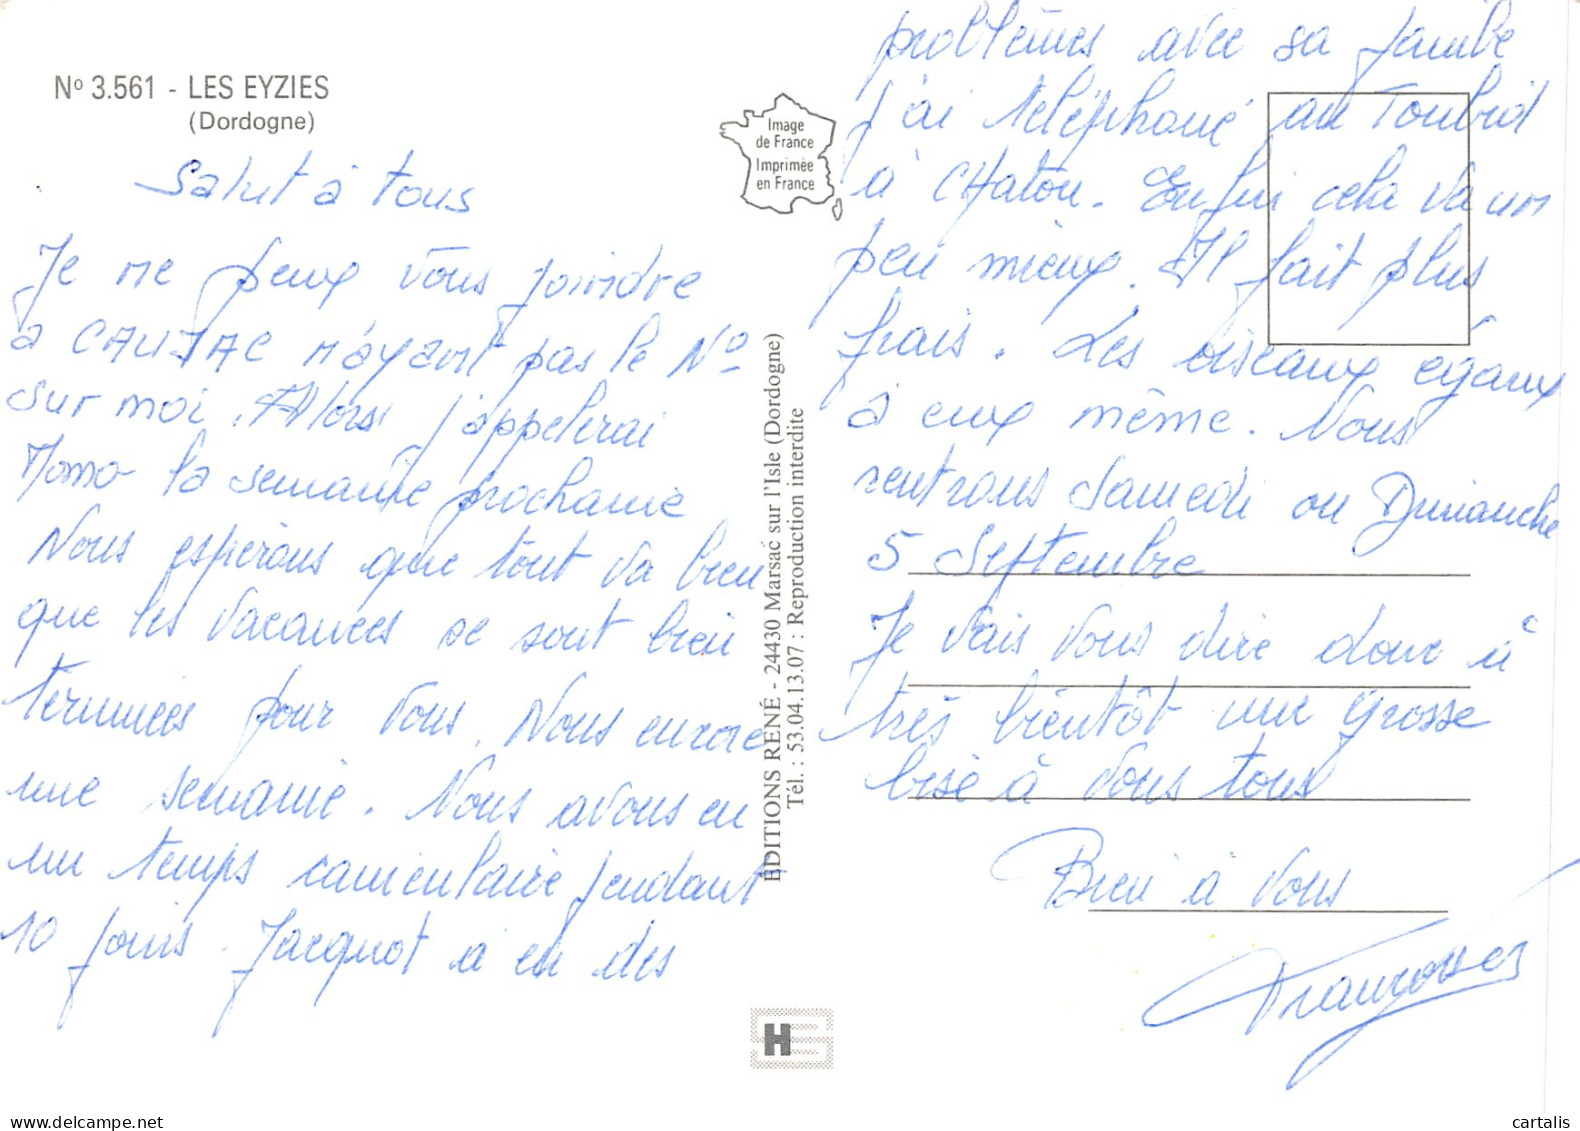 Nº 3.561 - LES EYZIES
(Dordogne)
Salut à tous
Je ne peux vous joindre
a CAUJAC n'ayant pas le Nº
sur moi. Alors j'appelerai
Momo la semaine prochaine
Nous espérons que tout va bien
que les vacances se sont bien
terminées pour vous. Nous encore
une semaine. Nous avons eu
un temps caniculaire pendant
10 jours. Jacquot a eu des
Image
de France
Imprimée
en France
EDITIONS RENÉ - 24430 Marsac sur l'Isle (Dordogne)
Tél. : 53.04.13.07 : Reproduction interdite
problèmes avec sa jambe
j'ai téléphoné au Toubid
à CHatou. Enfin cela va un
peu mieux. Il fait plus
frais. Les oiseaux égaux
à eux même. Nous
rentrons Samedi ou Dimanche
5 Septembre
Je vais vous dire donc à
très bientôt une grosse
bise à vous tous
Bien à vous
H
cartalis